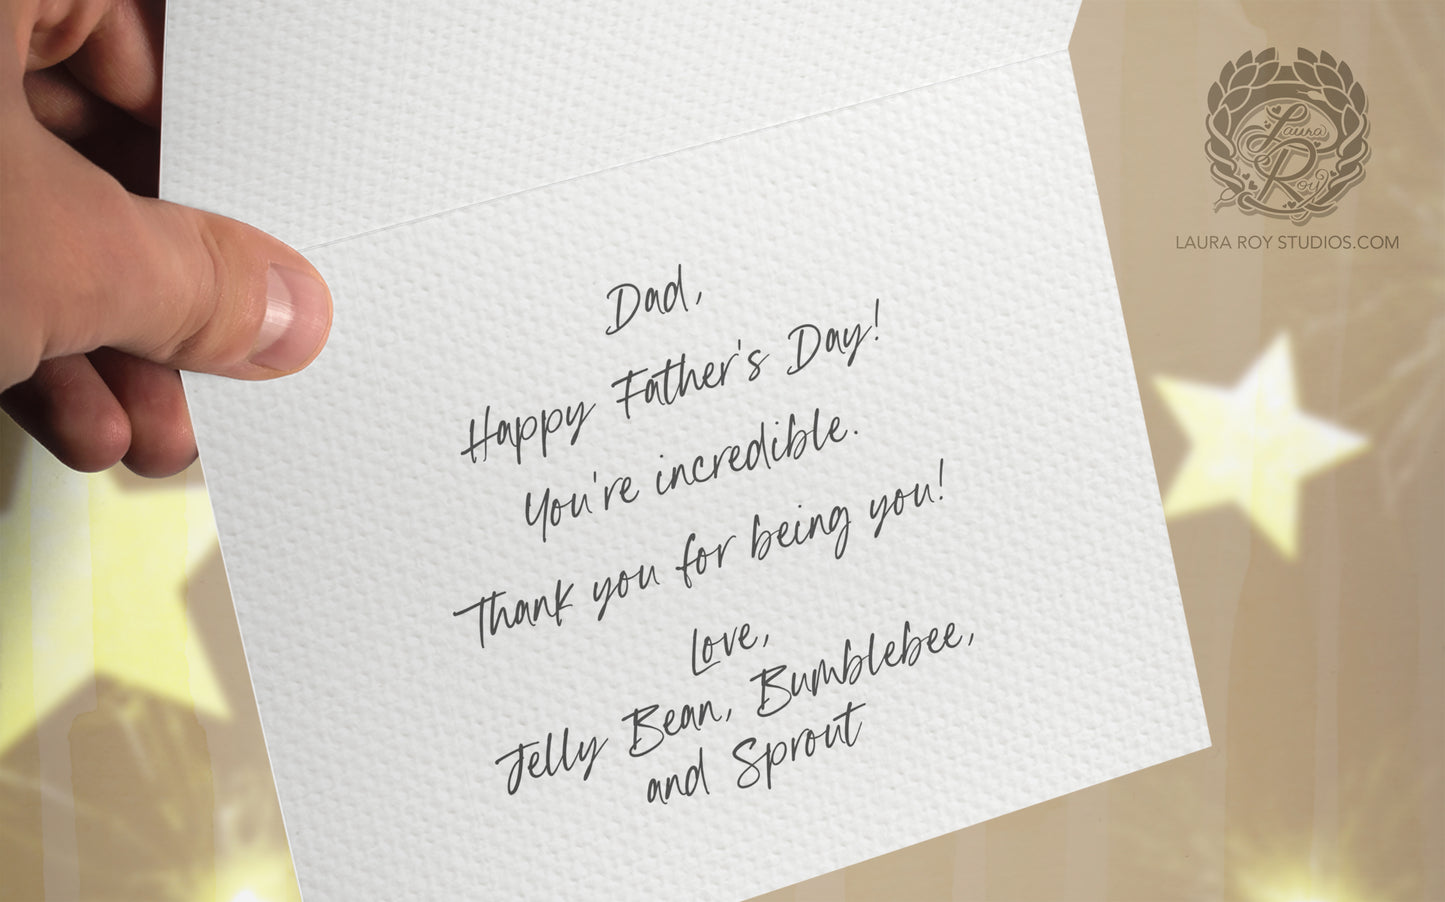 Laura
Roy
LAURA ROY STUDIOS.COM
Dad,
Happy Father's Day!
You're incredible.
Thank you for being you!
Love,
Jelly Bean, Bumblebee,
and Sprout